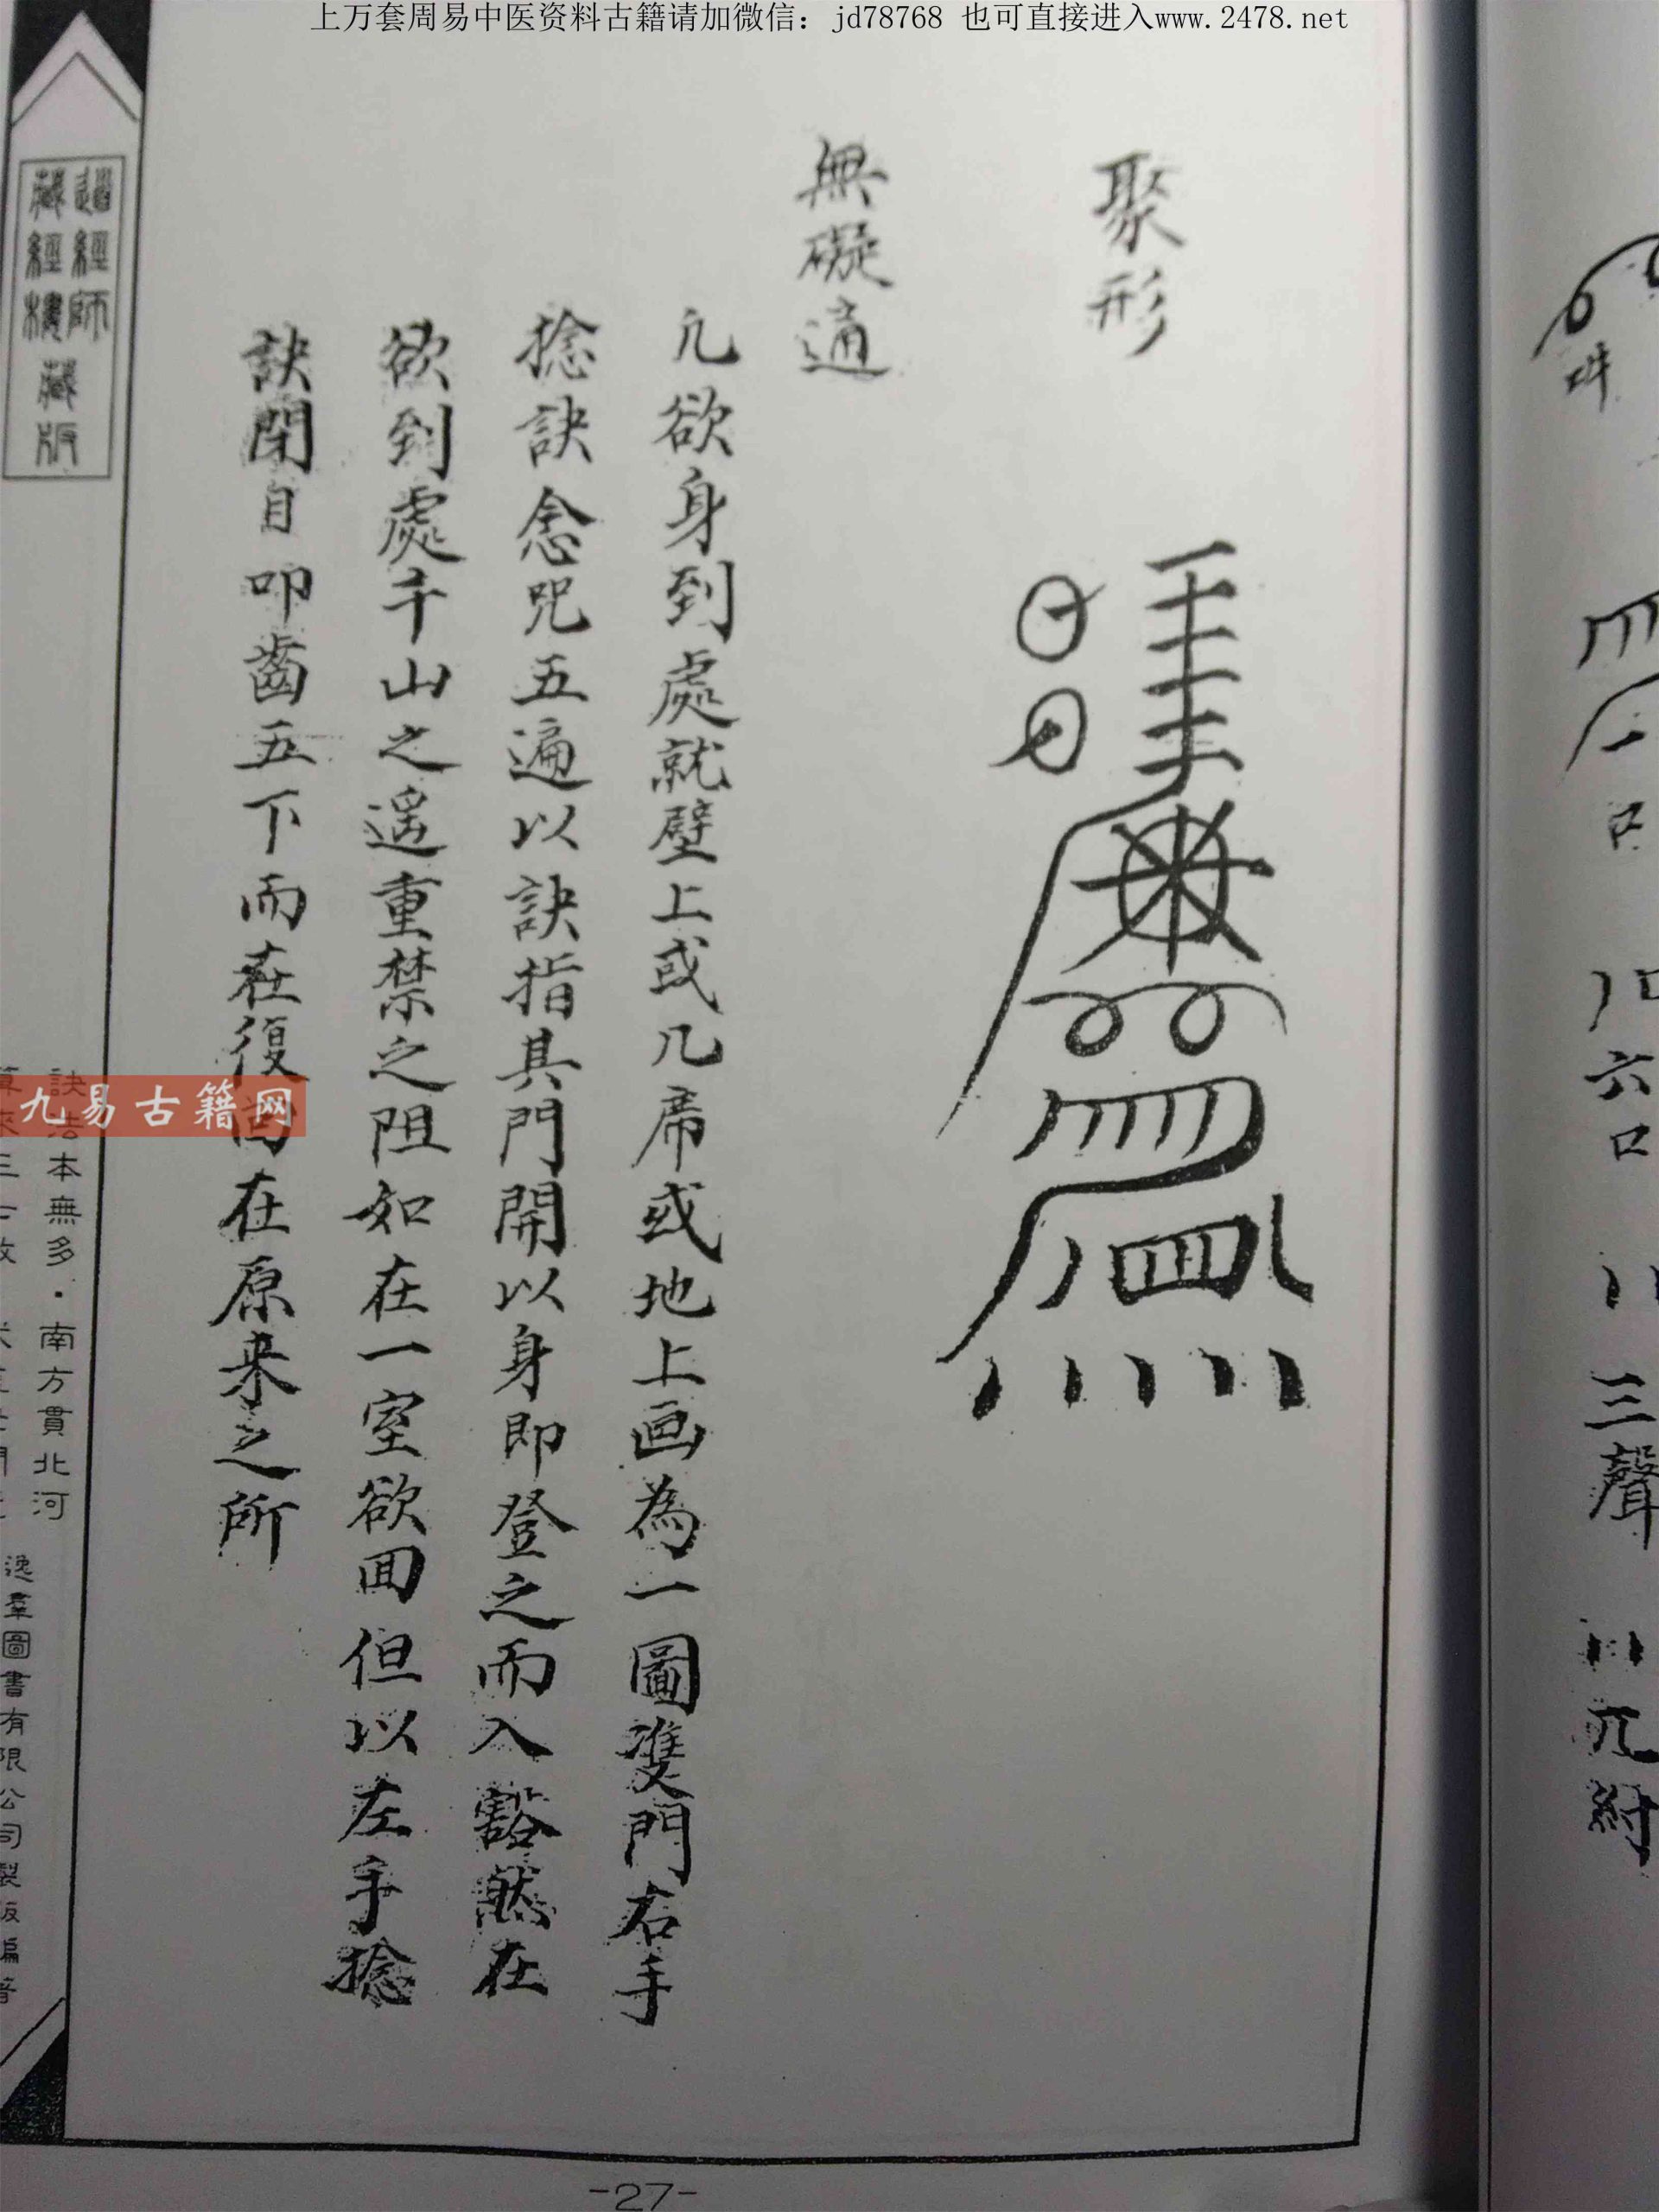 上万套周易中医资料古籍请加微信：jd78768 也可直接进入www.2478.net
聚形
無礙通
凡欲身到處就壁上或几席或地上画為一圖雙門右手
捻訣念咒五遍以訣指其門開以身即登之而入豁然在
欲到處千山之遥重禁之阻如在一室欲囬但以左手捻
訣閉目叩齒五下而在復而在原来之所
道經師
藏經樓
藏版
訣法本無多·南方貫北河
逸羣圖書有限公司製版編著
九易古籍网
六
三聲
-27-